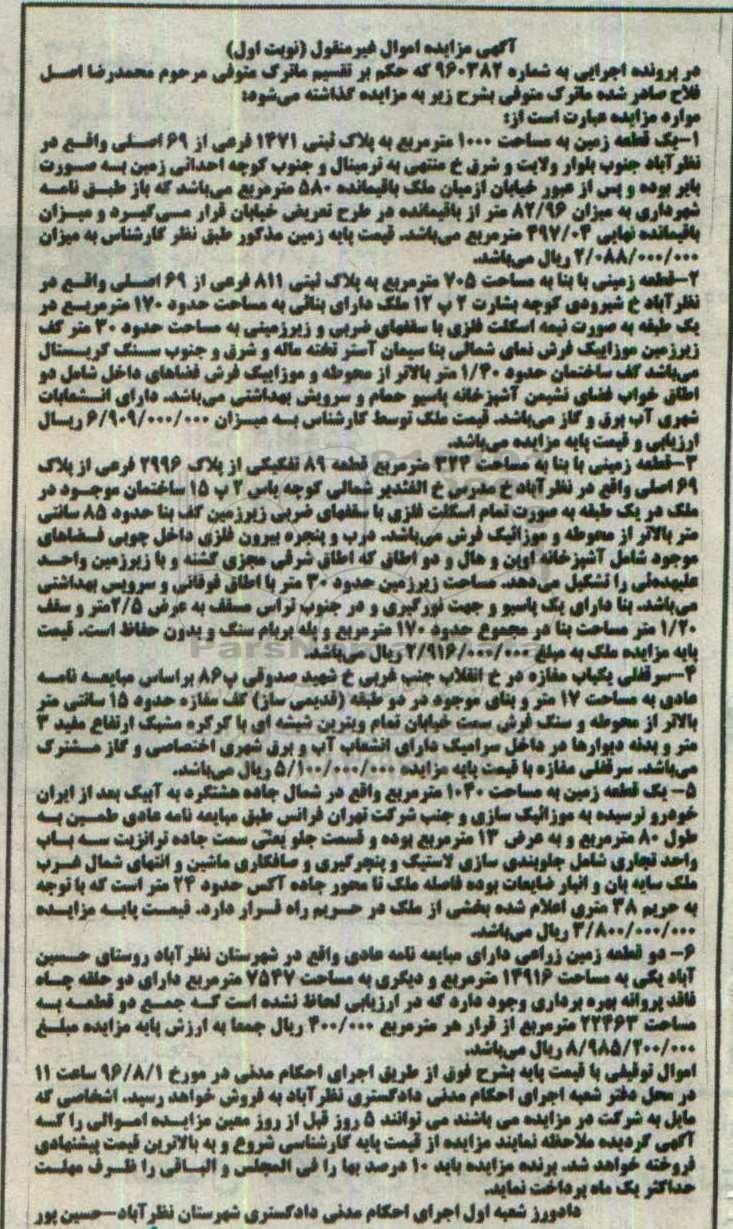 آگهی مزایده اموال غیرمنقول (نوبت اول)
در پرونده اجرایی به شماره ۹۶۰۳۸۲ که حکم بر تقسیم ماترک متوفی مرحوم محمدرضا اصل
فلاح صادر شده ماترک متوفی بشرح زیر به مزایده گذاشته می‌شود:
موارد مزایده عبارت است از:
۱-یک قطعه زمین به مساحت ۱۰۰۰ مترمربع به پلاک ثبتی ۱۴۷۱ فرعی از ۶۹ اصلی واقع در
نظرآباد جنوب بلوار ولایت و شرق خ منتهی به ترمینال و جنوب کوچه احداثی زمین به صورت
بایر بوده و پس از عبور خیابان ازمیان ملک باقیمانده ۵۸۰ مترمربع می‌باشد که باز طبق نامه
شهرداری به میزان ۸۲/۹۶ متر از باقیمانده در طرح تعریض خیابان قرار می‌گیرد و میزان
باقیمانده نهایی ۴۹۷/۰۴ مترمربع می‌باشد. قیمت پایه زمین مذکور طبق نظر کارشناس به میزان
۲/۰۸۸/۰۰۰/۰۰۰ ریال می‌باشد.
۲-قطعه زمینی با بنا به مساحت ۷۰۵ مترمربع به پلاک ثبتی ۸۱۱ فرعی از ۶۹ اصلی واقع در
نظرآباد خ شیرودی کوچه بشارت ۲ پ ۱۲ ملک دارای بنائی به مساحت حدود ۱۷۰ مترمربع در
یک طبقه به صورت نیمه اسکلت فلزی با سقفهای ضربی و زیرزمینی به مساحت حدود ۳۰ متر کف
زیرزمین موزاییک فرش نمای شمالی بنا سیمان آستر تخته ماله و شرق و جنوب سنگ کریستال
می‌باشد کف ساختمان حدود ۱/۴۰ متر بالاتر از محوطه و موزاییک فرش فضاهای داخل شامل دو
اطاق خواب فضای نشیمن آشپزخانه پاسیو حمام و سرویش بهداشتی می‌باشد. دارای انشعابات
شهری آب برق و گاز می‌باشد. قیمت ملک توسط کارشناس به میزان ۶/۹۰۹/۰۰۰/۰۰۰ ریال
ارزیابی و قیمت پایه مزایده می‌باشد.
۳-قطعه زمینی با بنا به مساحت ۳۲۴ مترمربع قطعه ۸۹ تفکیکی از پلاک ۲۹۹۶ فرعی از پلاک
۶۹ اصلی واقع در نظرآباد خ مدرس خ الغدیر شمالی کوچه یاس ۲ پ ۱۵ ساختمان موجود در
ملک در یک طبقه به صورت تمام اسکلت فلزی با سقفهای ضربی زیرزمین کف بنا حدود ۸۵ سانتی
متر بالاتر از محوطه و موزائیک فرش می‌باشد. درب و پنجره بیرون فلزی داخل چوبی فضاهای
موجود شامل آشپزخانه اوپن و هال و دو اطاق که اطاق شرقی مجزی گشته و با زیرزمین واحد
علیهده‌ئی را تشکیل می‌دهد. مساحت زیرزمین حدود ۳۰ متر با اطاق فوقانی و سرویس بهداشتی
می‌باشد. بنا دارای یک پاسیو و جهت نورگیری و در جنوب تراس مسقف به عرض ۲/۵متر و سقف
۱/۲۰ متر مساحت بنا در مجموع حدود ۱۷۰ مترمربع و پله بربام سنگ و بدون حفاظ است. قیمت
پایه مزایده ملک به مبلغ ۲/۹۱۶/۰۰۰/۰۰۰ ریال می‌باشد.
۴-سرقفلی یکباب مغازه در خ انقلاب جنب غربی خ شهید صدوقی پ۸۶ براساس مبایعه نامه
عادی به مساحت ۱۷ متر و بنای موجود در دو طبقه (قدیمی ساز) کف مغازه حدود ۱۵ سانتی متر
بالاتر از محوطه و سنگ فرش سمت خیابان تمام ویترین شیشه ای با کرکره مشبک ارتفاع مفید ۳
متر و بدنه دیوارها در داخل سرامیک دارای انشعاب آب و برق شهری اختصاصی و گاز مشترک
می‌باشد. سرقفلی مغازه با قیمت پایه مزایده ۵/۱۰۰/۰۰۰/۰۰۰ ریال می‌باشد.
۵- یک قطعه زمین به مساحت ۱۰۴۰ مترمربع واقع در شمال جاده هشتگرد به آبیک بعد از ایران
خودرو نرسیده به موزائیک سازی و جنب شرکت تهران فرانس طبق مبایعه نامه عادی طمین به
طول ۸۰ مترمربع و به عرض ۱۳ مترمربع بوده و قسمت جلو یعنی سمت جاده ترانزیت سه باب
واحد تجاری شامل جلوبندی سازی لاستیک و پنچرگیری و صافکاری ماشین و انتهای شمال غرب
ملک سایه بان و انبار ضایعات بوده فاصله ملک تا محور جاده آکس حدود ۲۴ متر است که با توجه
به حریم ۳۸ متری اعلام شده بخشی از ملک در حریم راه قرار دارد. قیمت پایه مزایده
۳/۸۰۰/۰۰۰/۰۰۰ ریال می‌باشد.
۶- دو قطعه زمین زراعی دارای مبایعه نامه عادی واقع در شهرستان نظرآباد روستای حسین
آباد یکی به مساحت ۱۴۹۱۶ مترمربع و دیگری به مساحت ۷۵۴۷ مترمربع دارای دو حلقه چاه
فاقد پروانه بهره برداری وجود دارد که در ارزیابی لحاظ نشده است که جمع دو قطعه به
مساحت ۲۲۴۶۳ مترمربع از قرار هر مترمربع ۴۰۰/۰۰۰ ریال جمعا به ارزش پایه مزایده مبلغ
۸/۹۸۵/۲۰۰/۰۰۰ ریال می‌باشد.
اموال توقیفی با قیمت پایه بشرح فوق از طریق اجرای احکام مدنی در مورخ ۹۶/۸/۱ ساعت ۱۱
در محل دفتر شعبه اجرای احکام مدنی دادگستری نظرآباد به فروش خواهد رسید. اشخاصی که
مایل به شرکت در مزایده می باشند می توانند ۵ روز قبل از روز معین مزایده اموالی را که
آگهی گردیده ملاحظه نمایند مزایده از قیمت پایه کارشناسی شروع و به بالاترین قیمت پیشنهادی
فروخته خواهد شد. برنده مزایده باید ۱۰ درصد بها را فی المجلس و الباقی را ظرف مهلت
حداکثر یک ماه پرداخت نماید.
دادورز شعبه اول اجرای احکام مدنی دادگستری شهرستان نظرآباد-حسین پور